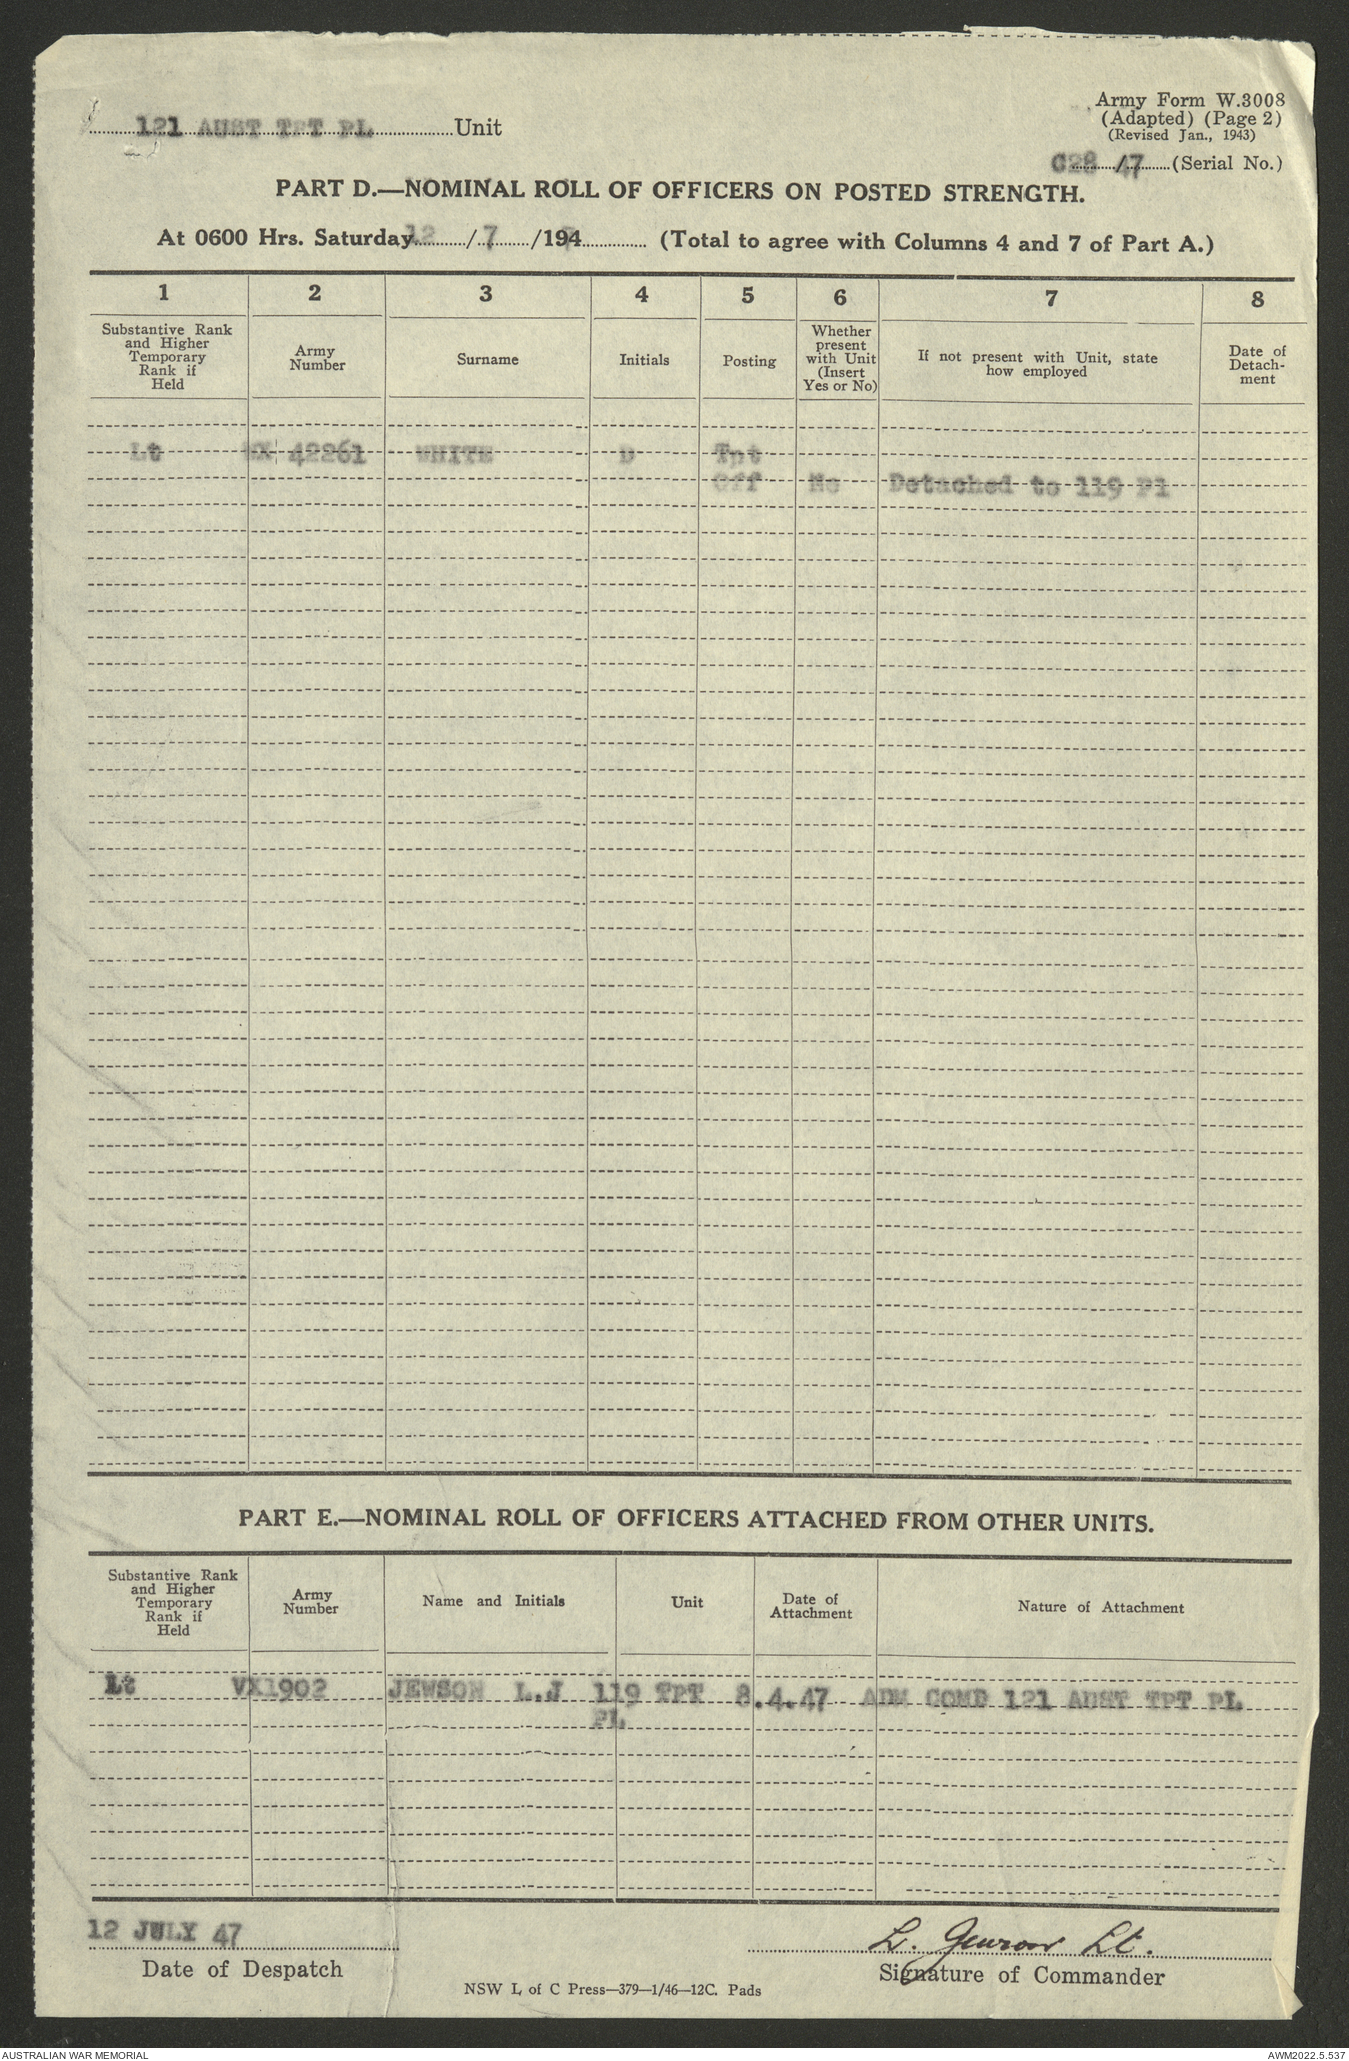 Army Form W.3008
(Adapted) (Page 2)
(Revised Jan., 1943)
121 AUST TPT PL Unit
C28 /47 (Serial No.)
PART D.—NOMINAL ROLL OF OFFICERS ON POSTED STRENGTH.
At 0600 Hrs. Saturday 12 / 7 /194 (Total to agree with Columns 4 and 7 of Part A.)
1 2 3 4 5 6 7 8
Substantive Rank and Higher Temporary Rank if Held
Army Number
Surname
Initials
Posting
Whether present with Unit (Insert Yes or No)
If not present with Unit, state how employed
Date of Detach-ment
Lt 42261 WHITE D Tpt
Off No Detached to 119 Pl
PART E.—NOMINAL ROLL OF OFFICERS ATTACHED FROM OTHER UNITS.
Substantive Rank and Higher Temporary Rank if Held
Army Number
Name and Initials
Unit
Date of Attachment
Nature of Attachment
Lt VX1902 JEWSON L.J 119 TPT 8.4.47 ADM COMD 121 AUST TPT PL
PL
12 JULY 47
L. Jewson Lt.
Date of Despatch
Signature of Commander
NSW L of C Press—379—1/46—12C. Pads
AUSTRALIAN WAR MEMORIAL
AWM2022.5.537